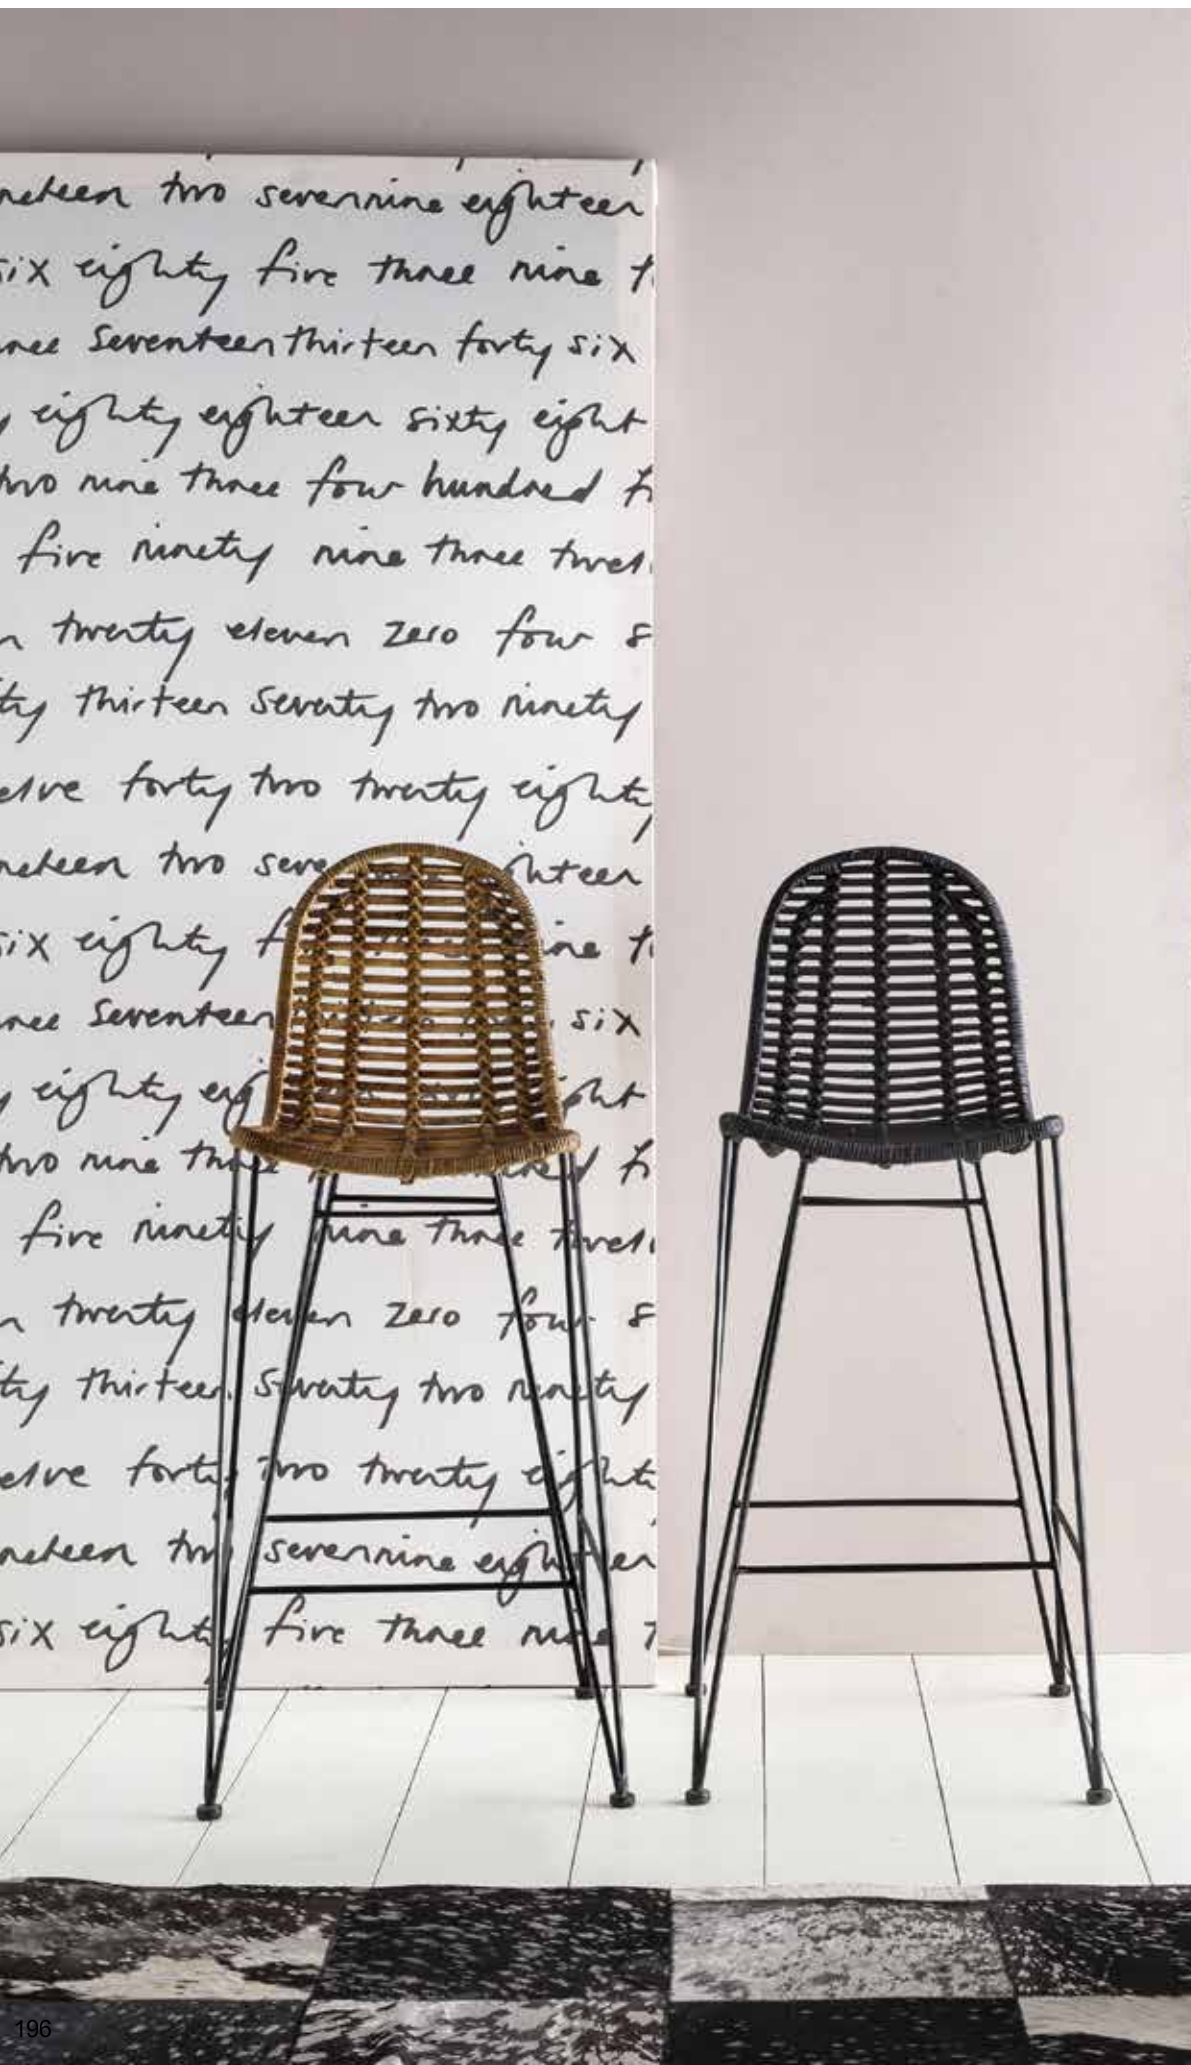 neteen two seven nine eighteen
six eighty five three nine t
ree seventeen thirteen forty six
y eighty eighteen sixty eight
two nine three four hundred fi
five ninety nine three twel
n twenty eleven zero four s
ty thirteen seventy two ninety
elve forty two twenty eighty
neteen two seve hteen
six eighty f ine t
ree seventeen six
y eighty eig ght
two nine three red fi
five ninety nine three twel
n twenty eleven zero four s
ty thirteen seventy two ninety
elve forty two twenty eighty
neteen two seven nine eighteen
six eighty five three nine t
196